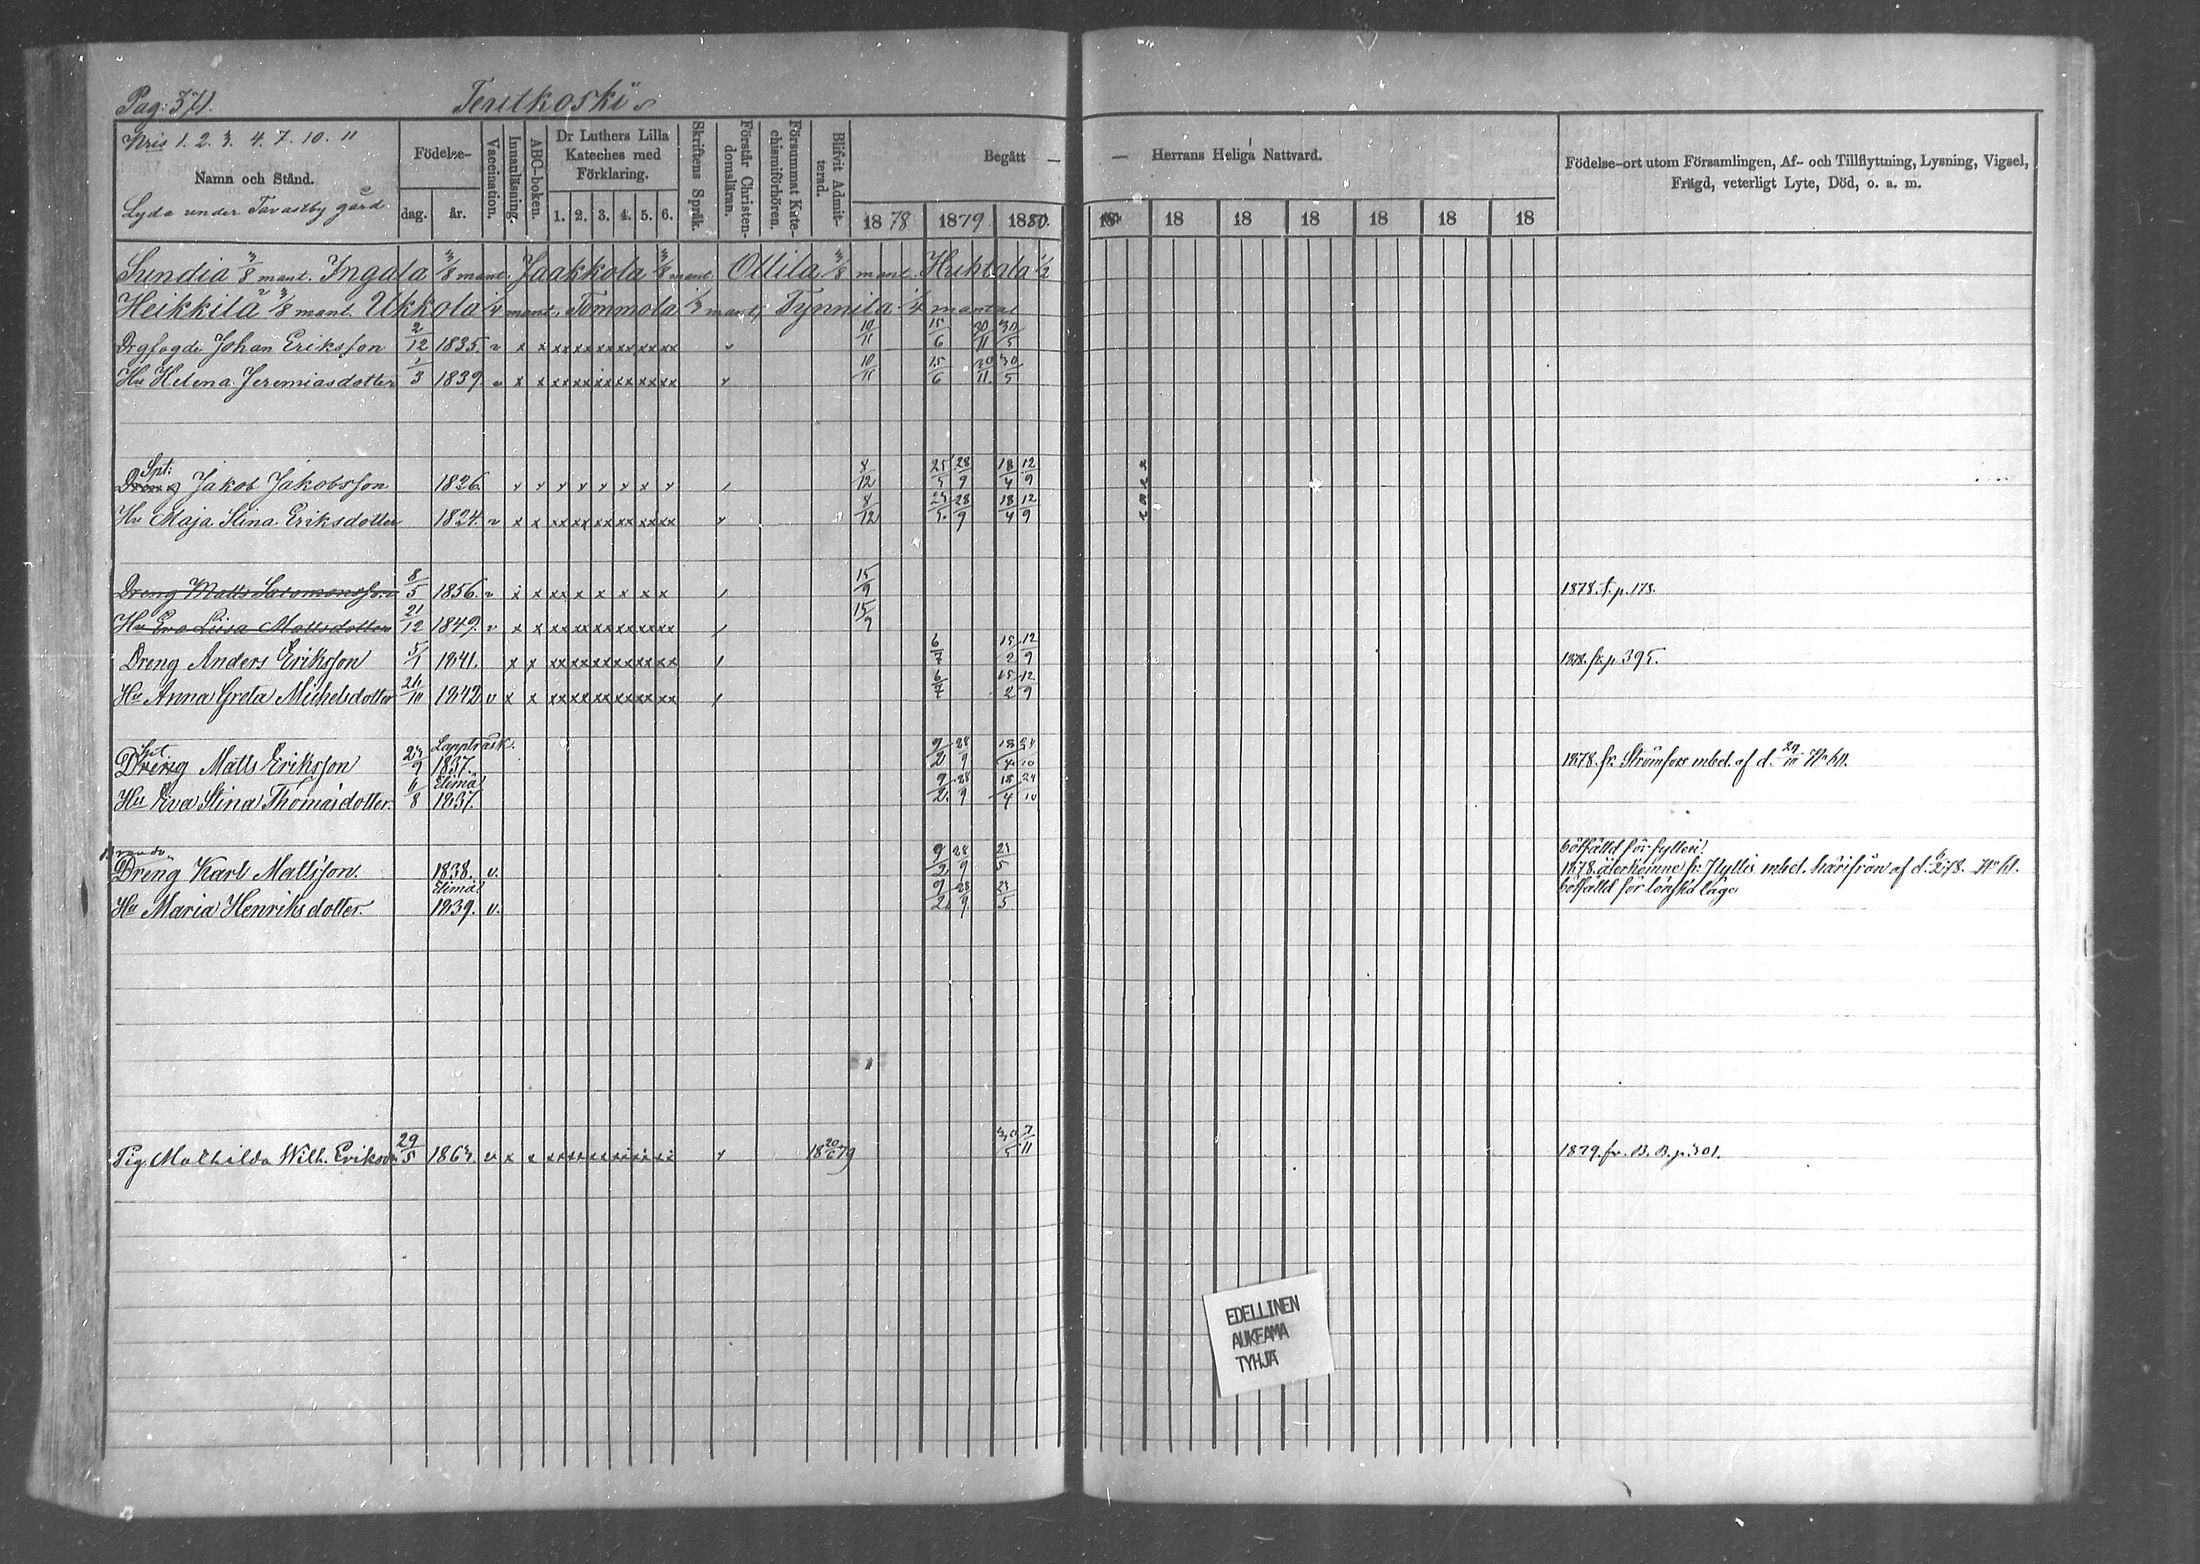 Pag: 371. Terutkoski
№ris 1. 2. 3. 4. 7. 10. 11
Namn och Stånd.
Lyda under Tavastby gård
Födelse-
dag. år.
Vaccination.
Innanläsning.
ABC-boken.
Dr Luthers Lilla Kateches med Förklaring.
1. 2. 3. 4. 5. 6.
Skriftens Språk.
Förstår Christendomsläran.
Försummat Katechismiförhören.
Blifvit Admitterad.
Begått — — Herrans Heliga Nattvard.
1878 1879 1880. 18 18 18 18 18 18 18
Födelse-ort utom Församlingen, Af- och Tillflyttning, Lysning, Vigsel,
Frägd, veterligt Lyte, Död, o. a. m.
Sundia 3/8 mant. Ingala 3/8 mant. Jaakkola 3/8 mant. Ollila 3/8 mant. Huhtala 1/2
Heikkilä 3/8 mant. Ukkola 1/4 mant. Tommola 1/3 mant, Tynnila 1/4 mantal
Drgfogde Johan Eriksson 2/12 1835. v x x xx xx xx xx xx xx 10/11 15/6 30/11 30/5
Hu Helena Jeremiasdotter 1/3 1839. v x x xx xx xx xx xx xx 10/11 15/6 20/11 30/5
Spt:
Dreng Jakob Jakobsson 1826. 8/12 25/5 28/9 18/4 12/9
Hu Maja Stina Eriksdotter 1824. v x x xx xx xx xx xx xx 8/12 25/5 28/9 18/4 12/9
Dreng Matts Salomonsson 8/5 1856. v 15/9 1878. t. p. 178.
Hu Eva Lisa Mattsdotter 21/12 1849. v x x xx xx xx xx xx xx 15/9
Dreng Anders Eriksson 5/1 1841. x x xx xx xx xx xx xx 6/7 15/2 12/9 1878. fr. p. 395.
Hu Anna Greta Michelsdotter 24/10 1842 v x x xx xx xx xx xx xx 6/7 15/2 12/9
Spt Lappträsk.
Dreng Matts Eriksson 23/9 1837. 9/2 28/9 18/4 24/10 1878. fr. Strömfors mbet. af d. 29/10 № 60.
Elimä
Hu Eva Stina Thomasdotter. 6/8 1837. 9/2 28/9 18/4 24/10
bötfälld för fylleri.
Dreng Karl Mattsson. 1838. v. 9/2 28/9 23/5 1878. återkomne fr. Hyllis mbet. härifrån af d. 6/2 78. № 61.
Elimä bötfälld för lönskaläge
Hu Maria Henriksdotter. 1839. v. 9/2 28/9 23/5
Pig. Mathilda Wilh. Eriksdr 29/5 1863. v x x xx xx xx xx xx xx 18 20/6 79 30/5 7/11 1879. fr. B. B. p. 301.
EDELLINEN
AUKEAMA
TYHJÄ